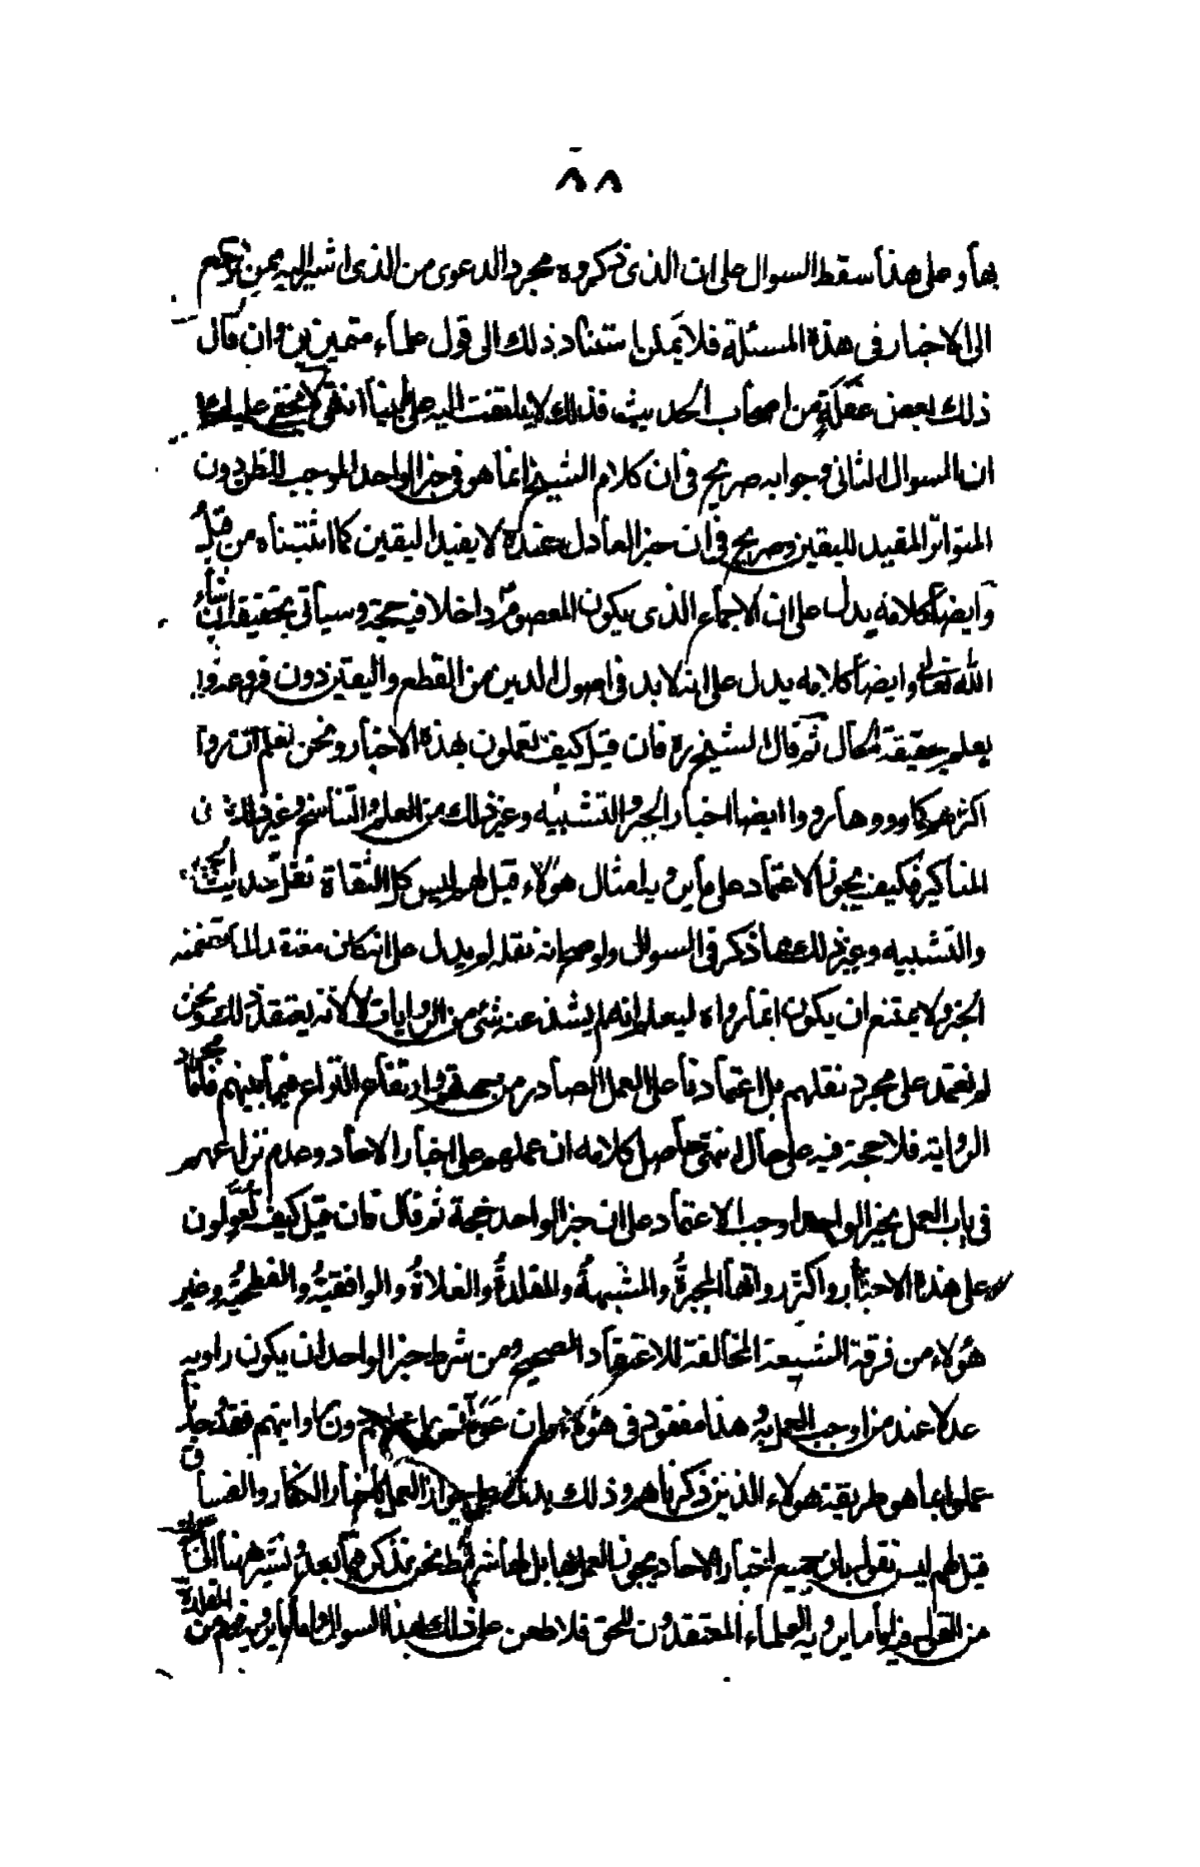 ٨٨
بها وعلى هذا سقط السوال على ان الذى ذكروه مجرد الدعوى من الذى اشير اليهم
الى الاخبار فى هذه المسئلة فلا يمكن استناد ذلك الى قول علماء متميزين وان قال
ذلك بعض غفلة من اصحاب الحديث فذلك لا يلتفت اليه على ما بينا انتهى لا يخفى عليك
ان السوال الثانى وجوابه صريح فى ان كلام الشيخ انما هو فى خبر الواحد الموجب للظن دون
المتواتر المفيد لليقين وصريح فى ان خبر العادل عنده لا يفيد اليقين كما اثبتناه من قبل
وايضا كلامه يدل على ان الاجماع الذى يكون المعصوم داخلا فيه حجة وسيأتى تحقيقه انشاء
الله تعالى وايضا كلامه يدل على انه لا بد فى اصول الدين من القطع واليقين دون فروعه والله
يعلم حقيقة الحال ثم قال الشيخ ره فان قيل كيف تعملون بهذه الاخبار ونحن نعلم ان رواتها
اكثرهم كما رووها رووا ايضا اخبار الجبر والتشبيه وغير ذلك من الغلو والتناسخ وغير ذلك من
المناكير فكيف يجوز الاعتماد على ما يرويه امثال هؤلاء قيل لهم ليس كل الثقاة نقل حديث الجبر
والتشبيه وغير ذلك مما ذكر فى السوال ولو صح انه نقله لم يدل على انه كان معتقدا لما تضمنه
الخبر ولا يمتنع ان يكون انما رواه ليعلم انه لم يشذ عنه شئ من الروايات لا لانه يعتقد ذلك ونحن
لم نعتمد على مجرد نقلهم بل اعتمادنا على العمل الصادر من جهتهم وارتفاع النزاع فيما بينهم فاما مجرد
الرواية فلا حجة فيه على حال انتهى حاصل كلامه ان عملهم على اخبار الاحاد وعدم نزاعهم
فى باب العمل بخبر الواحد اوجب الاعتماد على ان خبر الواحد حجة ثم قال فان قيل كيف تعولون
على هذه الاخبار واكثر رواتها المجبرة والمشبهة والمقلدة والغلاة والواقفية والفطحية وغير
هؤلاء من فرقة الشيعة المخالفة للاعتقاد الصحيح ومن شرط خبر الواحد ان يكون راويه
عدلا عند من اوجب العمل به وهذا مفقود فى هؤلاء وان عولتم على عملهم دون روايتهم فقد وجدنا
عملوا بما هو طريقة هؤلاء الذين ذكرناهم وذلك يدل على جواز العمل باخبار الكفار والفساق
قيل لهم ليس نقول بان جميع اخبار الاحاد يجوز العمل بها بل لها شرائط نحن نذكرها فيما بعد ونشير هيهنا الى جملة
من القول فيه فاما ما يرويه العلماء المعتقدون للحق فلا طعن على ذلك بهذا السوال واما ما يرويه قوم من المقلدة